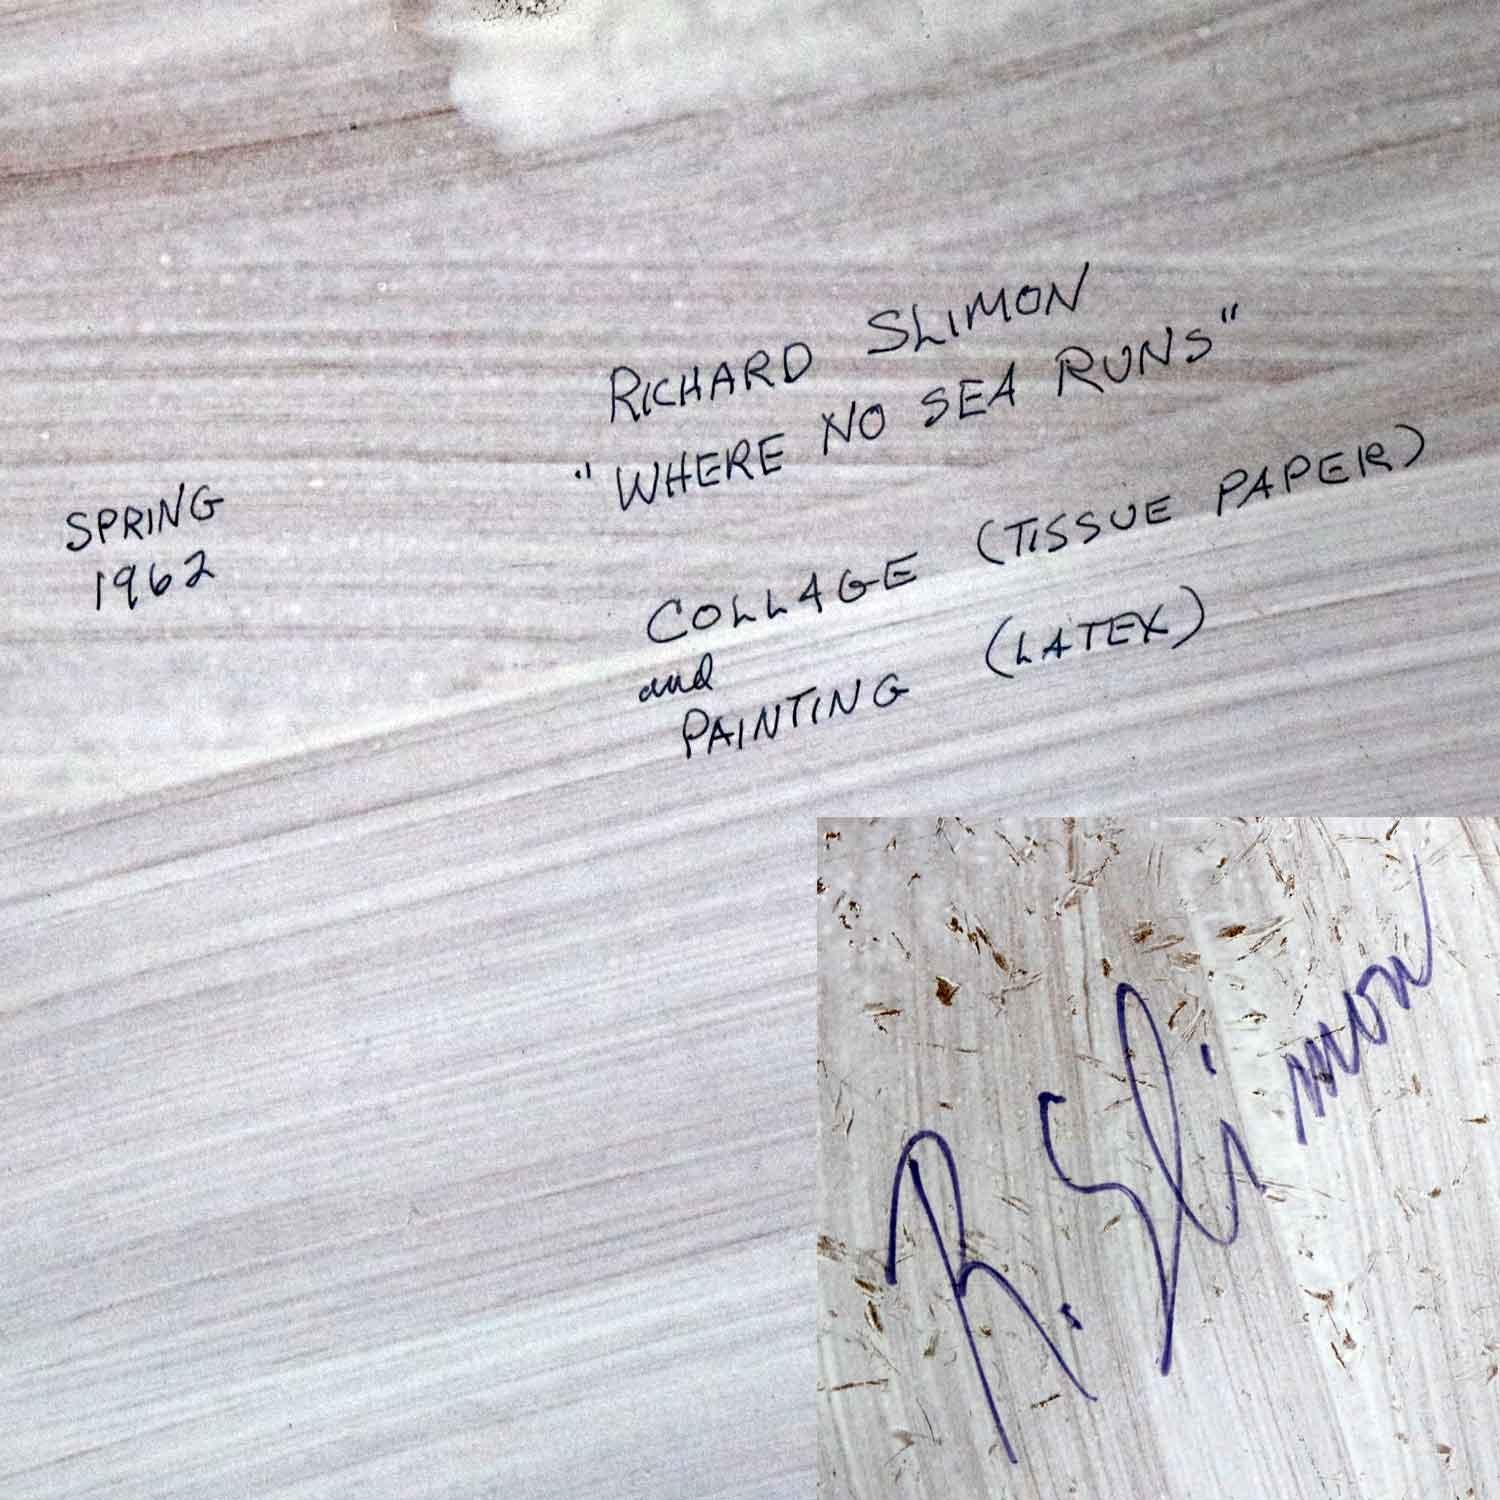 RICHARD SLIMON
"WHERE NO SEA RUNS"
SPRING
1962
COLLAGE (TISSUE PAPER)
and
PAINTING (LATEX)
R. Slimon